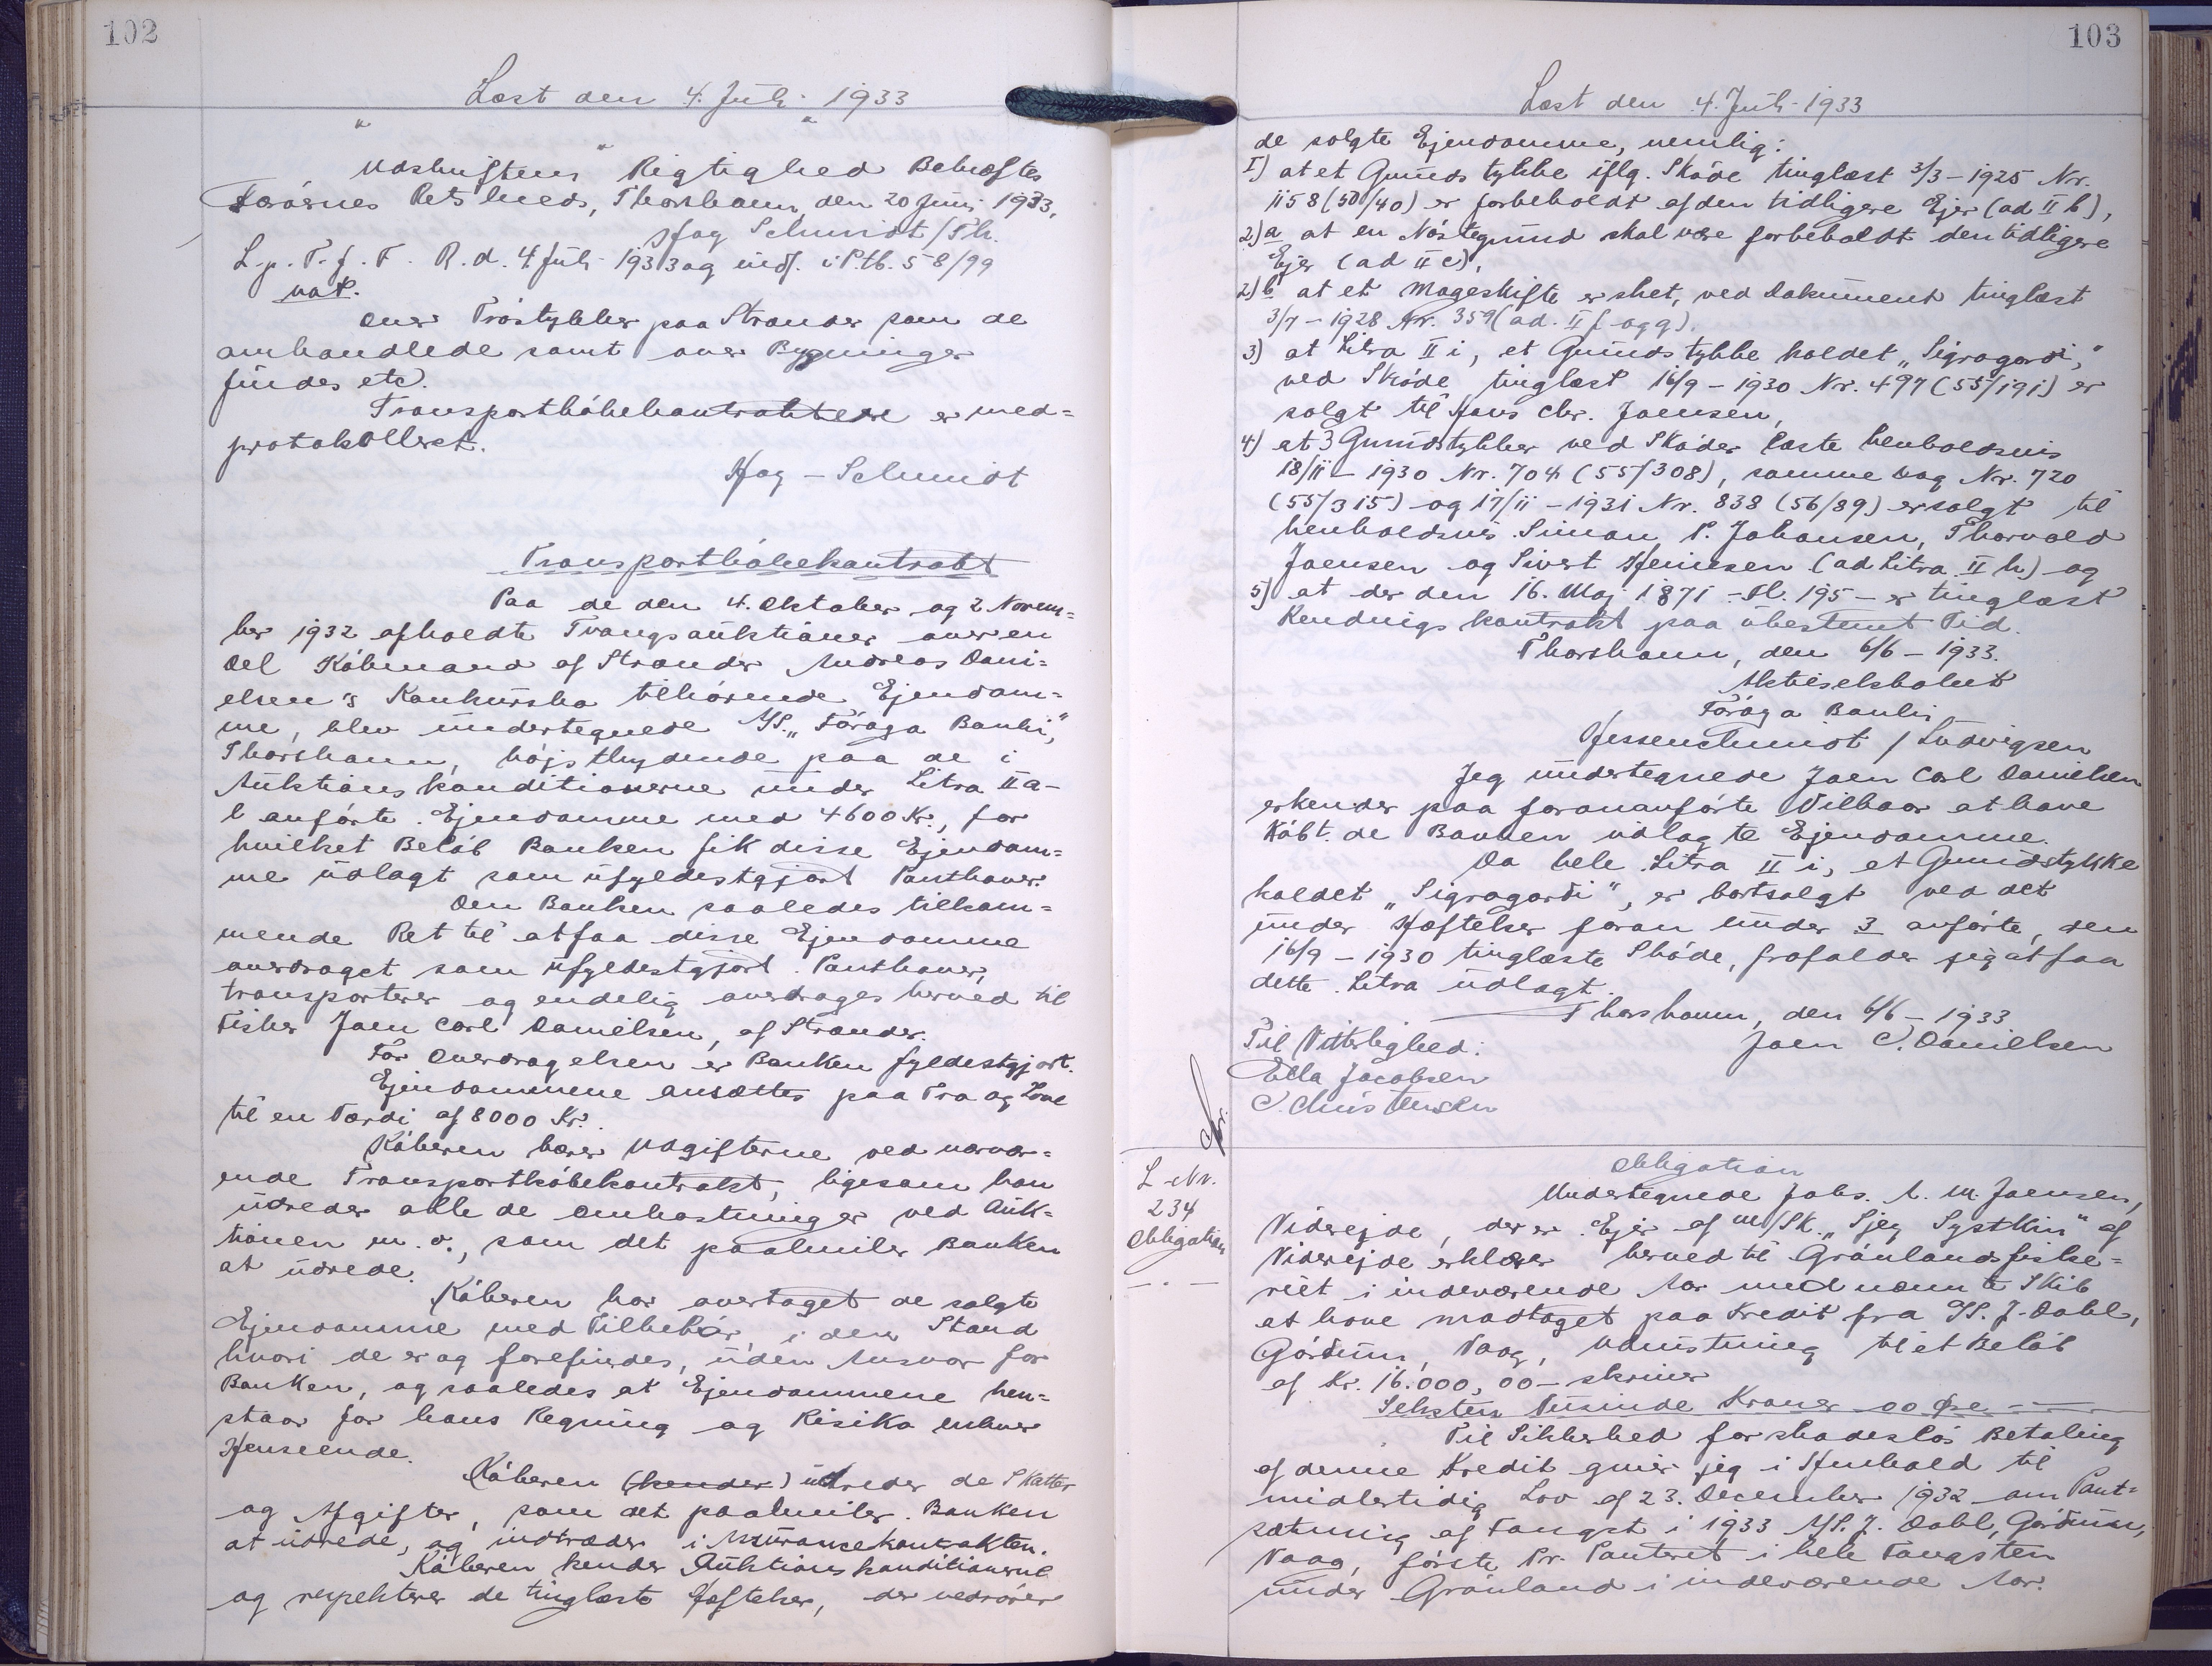 102
Læst den 4. Juli 1933
Udskriftens Rigtighed Bekræftes
Færøernes Retskreds, Thorshavn, den 20 Juni 1933,
Høg Schmidt / Th.
L. p. T. f. F. R. d. 4 Juli 1933 og indf. i P.tb. 58/99
not.
over Tróstykker paa Strænder som de
omhandlede samt over Bygninger
findes etc.
Transportkøbekontrakten er med-
protokolleret.
Høg-Schmidt
Transportkøbekontrakt
Paa de den 4. Oktober og 2 Novem=
ber 1932 afholdte Tvangsauktioner over en
Del Købmand af Strænder Andreas Dani=
elsen's Konkursbo tilhørende Ejendom=
me, blev undertegnede A/S. „Føroya Banki",
Thorshavn, højstbydende paa de i
Auktionskonditionerne under Litra II a-
l anførte Ejendomme med 4600 Kr., for
hvilket Beløb Banken fik disse Ejendom=
me udlagt som ufyldestgjort Panthaver.
Den Banken saaledes tilkom=
mende Ret til at faa disse Ejendomme
overdraget som ufyldestgjort Panthaver,
transporterer og endelig overdrages herved til
Fisker Joen Carl Danielsen, af Strænder.
For Overdragelsen er Banken fyldestgjort.
Ejendommene ansættes paa Tro og Love
til en Værdi af 8000 Kr.
Køberen bærer Udgifterne ved nærvær=
ende Transportkøbekontrakt, ligesom han
udreder alle de Omkostninger ved Auk=
tionen m.v., som det paahviler Banken
at udrede.
Køberen har overtaget de solgte
Ejendomme med Tilbehør i den Stand
hvori de er og forefindes, uden Ansvar for
Banken, og saaledes at Ejendommene hen=
staar for hans Regning og Risiko enhver
Henseende.
Køberen (kender) udreder de Skatter
og Afgifter, som det paahviler Banken
at udrede, og indtræder i Assurancekontrakten.
Køberen kender Auktionskonditionerne
og respekterer de tinglæste Hæftelser, der vedrører
103
Læst den 4. Juli 1933
de solgte Ejendomme, nemlig:
1) at et Grundstykke iflg. Skøde tinglæst 3/3-1925 Nr.
1158 (50/40) er forbeholdt af den tidligere Ejer (ad II b),
2) a at en Nøstegrund skal være forbeholdt den tidligere
Ejer (ad II c),
2) b at et Mageskifte er sket, ved Dokument tinglæst
3/7-1928 Nr. 359 (ad. II f og g).
3) at Litra II i, et Grundstykke kaldet „Sigragardi,"
ved Skøde tinglæst 16/9-1930 Nr. 497 (55/191) er
solgt til Hans Chr. Joensen,
4) at 3 Grundstykker ved Skøder læste henholdsvis
18/11-1930 Nr. 704 (55/308), samme Dag Nr. 720
(55/315) og 17/11-1931 Nr. 838 (56/89) er solgt til
henholdsvis Simon P. Johansen, Thorvald
Joensen og Sivert Heinesen (ad Litra II h) og
5) at der den 16. Maj 1871 - Fl. 195 - er tinglæst
Kendnigs kontrakt paa ubestemt Tid.
Thorshavn, den 6/6-1933.
Aktieselskabet
Føroya Banki
Hessenschmidt / Ludvigsen
Jeg undertegnede Joen Carl Danielsen
erkender paa forananførte Vilkaar at have
købt de Banken udlagte Ejendomme.
Da hele Litra II i, et Grundstykke
kaldet „Sigragardi", er bortsolgt ved det
under Hæftelser foran under 3 anførte, den
16/9-1930 tinglæste Skøde, frafalder jeg at faa
dette Litra udlagt.
Thorshavn, den 6/6-1933
Til Vitterlighed: Joen C. Danielsen
Ella Jacobsen
C. Christensen
L. Nr.
234
Obligation
Obligation
Undertegnede Johs. A. M. Joensen,
Viderejde, der er Ejer af M/Sk. „Sjey Systkin" af
Viderejde erklærer herved til Grønlandsfiske=
riet i indeværende Aar med nævnte Skib
at have modtaget paa Kredit fra A/S. J. Dahl,
Gørdum, Vaag, Udrustning til et Beløb
af Kr. 16.000,00 - skriver
Seksten Tusinde Kroner 00 Øre
Til Sikkerhed for skadesløs Betaling
af denne Kredit giver jeg i Henhold til
midlertidig Lov af 23. December 1932 om Pant=
sætning af Fangst i 1933 A/S. J. Dahl, Gørdum,
Vaag, første Pr. Panteret i hele Fangsten
under Grønland i indeværende Aar.